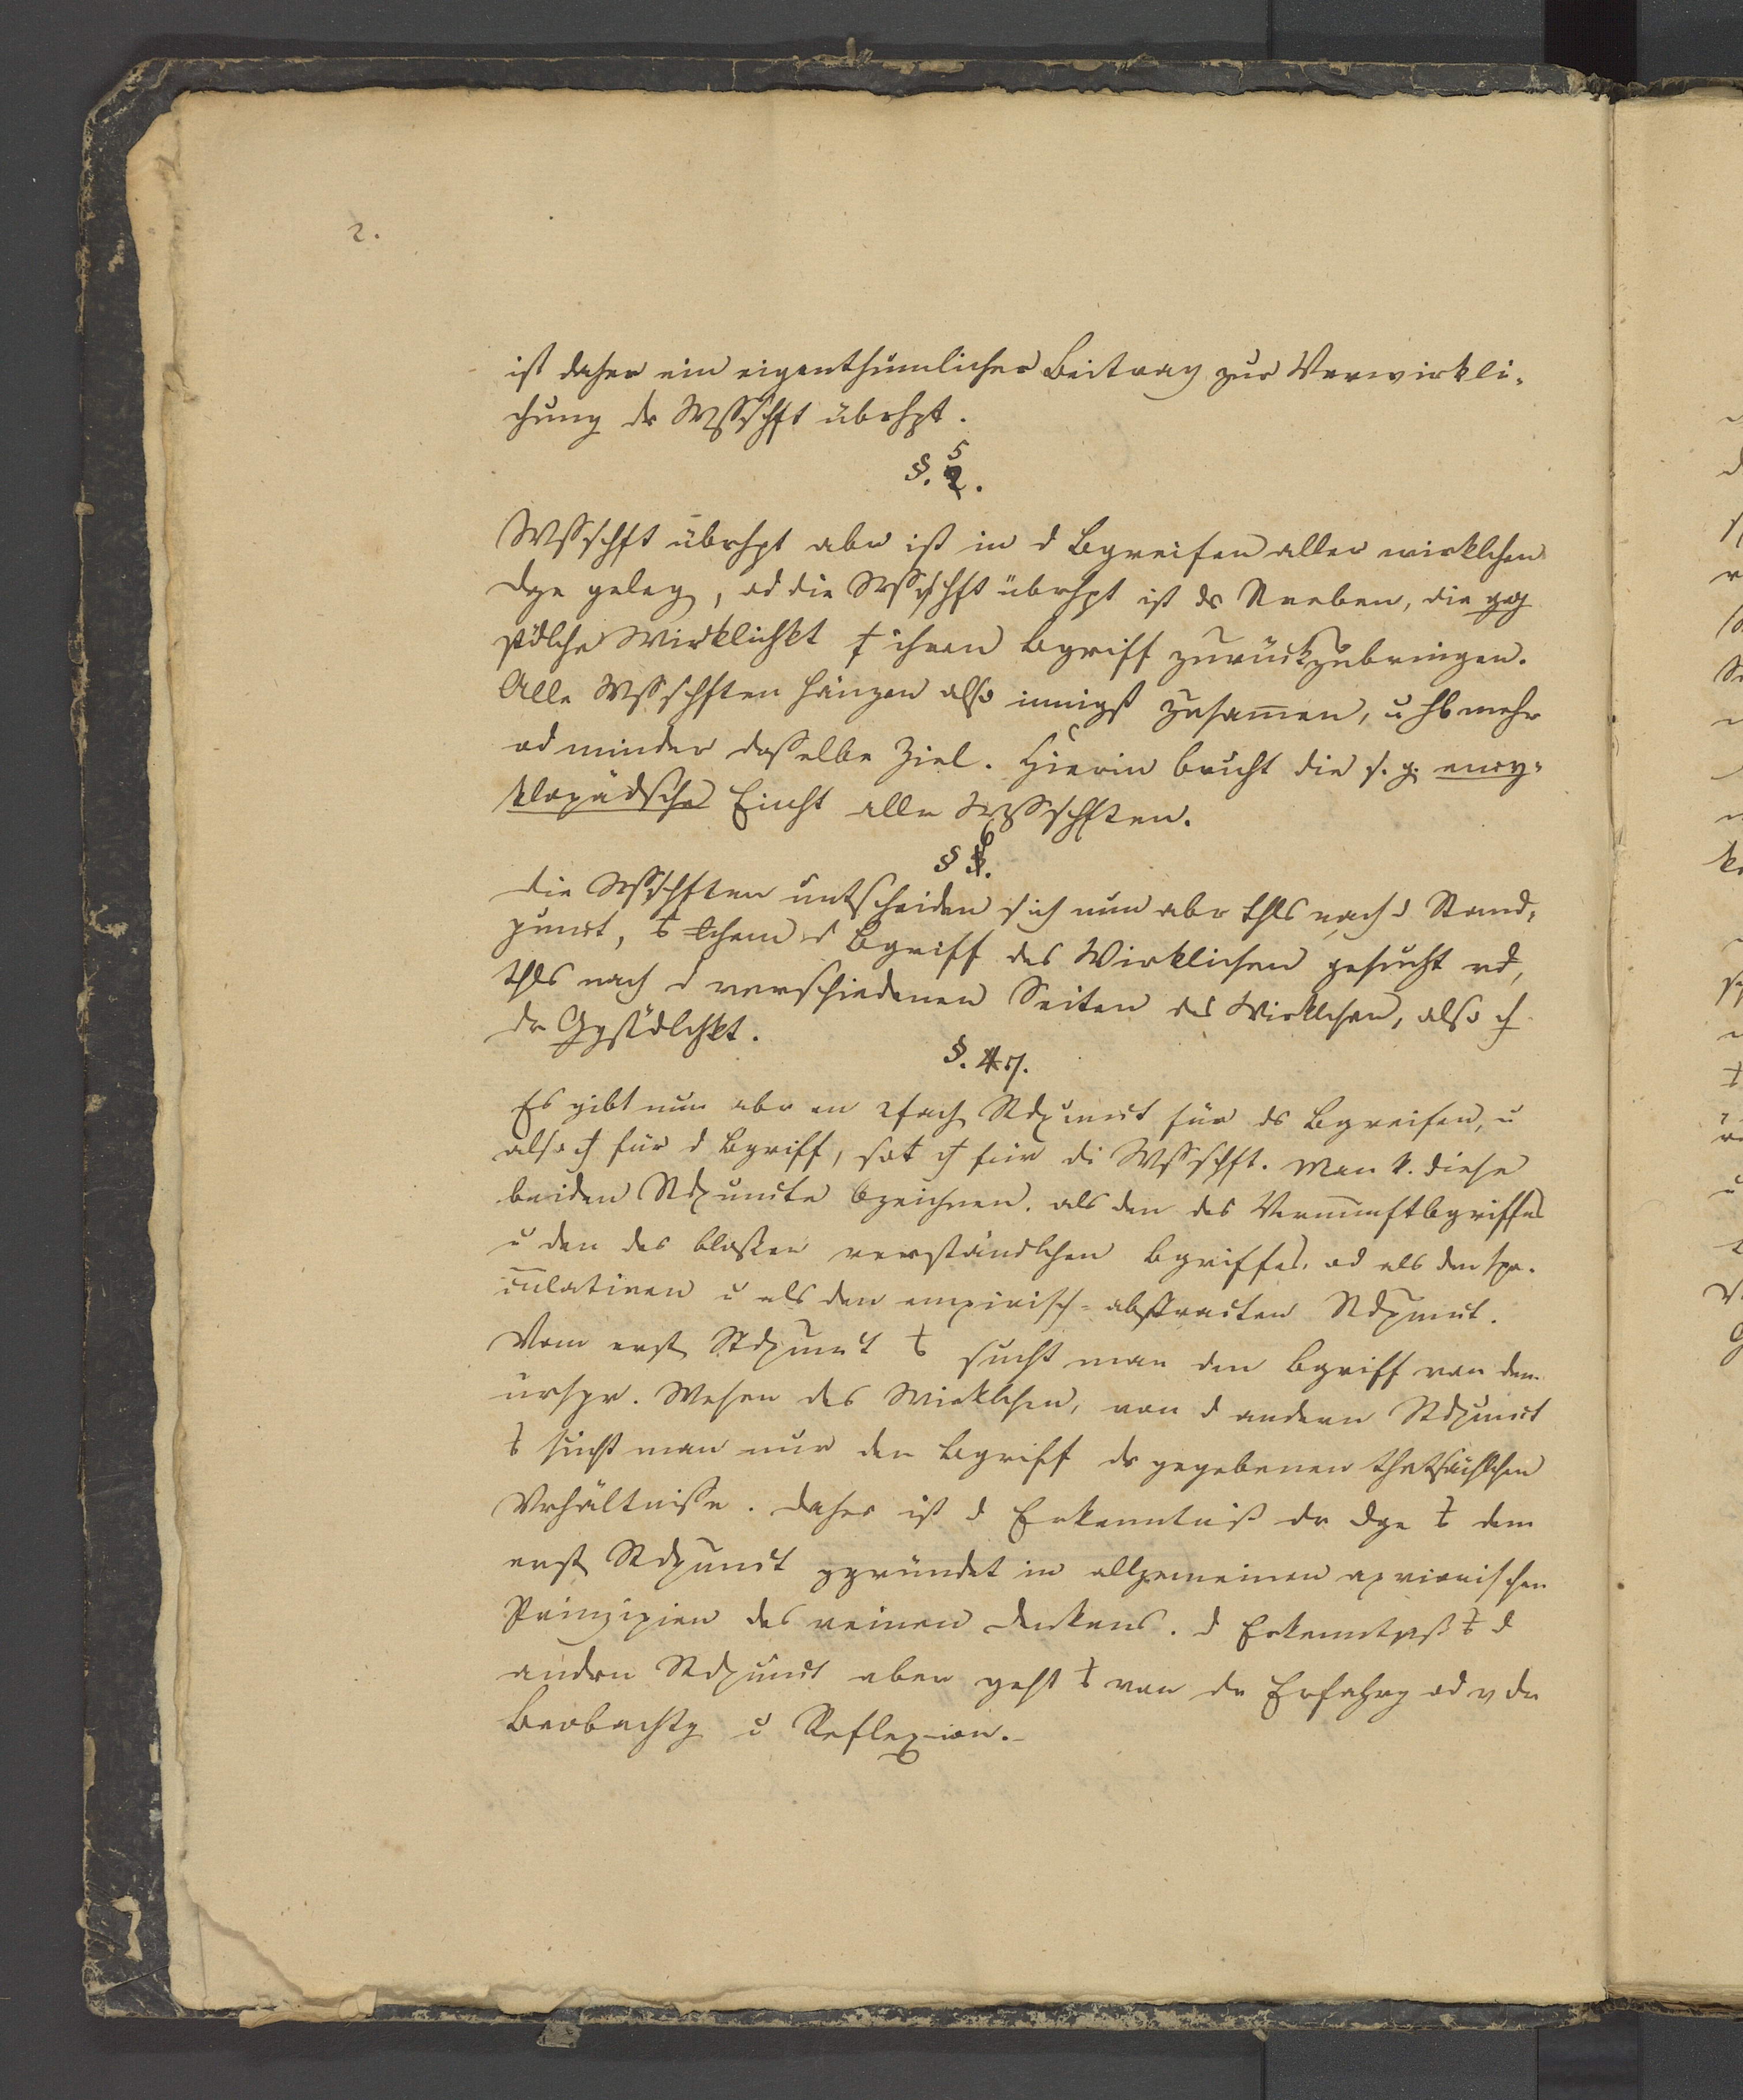 2.
ist daher ein eigenthümlicher Beitrag zur Verwirkli-
chung dr Wssschft übrhpt.
§. 5 2.
Wssschft übrhpt aber ist in d Bgreifen aller wirklchen
Dge gelegen, od die Wssschft übrhpt ist ds Streben, die geg
stdlche Wirklichkt ihren Bgriff zurückzubringen.
Alle Wssschften hängen also innigst zusamen, u hb mehr
od minder dasselbe Ziel. Hierin bruht die s. g. ency-
klopädsche Einht aller Wssschften.
§ 6.
Die Wssschften untscheiden sich nun abr thls nach d Stand-
punct, d Bgriff des Wirklichen gesucht wd,
thls nach d verschiedenen Seiten des Wirklchen, also
dr Ggstdlchkt.
§. 4 7.
Es gibt nun abr en 2fach Stdpunct für ds Bgreifen, u
also für d Bgriff, für di Wssschft. Man k. diese
beiden Stdpuncte bzeichnen. als den des Vernunftbgriffes
u den des blossen verständlchen Bgriffes. od als den spe-
culativen u als den empirisch-abstracten Stdpunct.
Vom erst Stdpunct sucht man den Bgriff von dem
urspr. Wesen des Wirklchen, von d andern Stdpunct
sucht man nur den Bgriff dr gegebenen thatsächlchen
Vrhältnisse. Daher ist d Erkenntniß dr Dge dem
erst Stdpunct ggründet in allgemeinen apriorischen
Prinzipien des reinen Denkens. d Erkenntnß d
andrn Stdpunct aber geht von dr Erfahrg od v dr
Beobachtg u Reflexion.